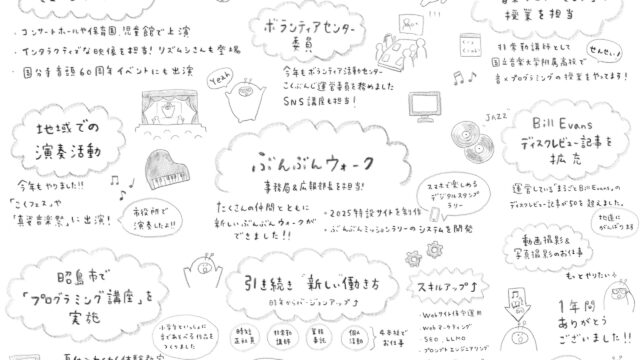 ・コンサートホールや保育園、児童館で上演
・インタラクティブな映像を担当！リズムシさんも登場
・国分寺童謡60周年イベントにも出演
Yeah
ボランティアセンター
委員
今年もボランティア活動センター
こくぶんじ運営委員を務めました
SNS講座も担当！
授業を担当
非常勤講師として
国立音楽大学附属高校で
音×プログラミングの授業をやってます！
せんせい！
地域での
演奏活動
今年もやりました！！
「こくフェス」や
「真姿音楽祭」に出演！
市役所で
演奏したよ！！
ぶんぶんウォーク
事務局&広報部長を担当！
たくさんの仲間とともに
新しいぶんぶんウォークが
できました！！
スマホで楽しめる
デジタルスタンプ
ラリー
・2025特設サイトを制作
・ぶんぶんミッションラリーのシステムを開発
JAZZ
Bill Evans
ディスクレビュー記事を
拡充
運営している"まるごとBill Evans"の
ディスクレビュー記事が50を超えました。
地道に
がんばります
動画撮影&
写真撮影のお仕事
もっとやりたい
昭島市で
「プログラミング講座」を
実施
小学生といっしょに
音であそべる作品を
つくりました
引き続き"新しい"働き方
時短
正社員
非常勤
講師
業務
委託
個人
活動
4本柱で
お仕事
スキルアップ
・Webサイト保守運用
・Webマーケティング
・SEO、LLMO
・プロンプトエンジニアリング
1年間
ありがとう
ございました！！